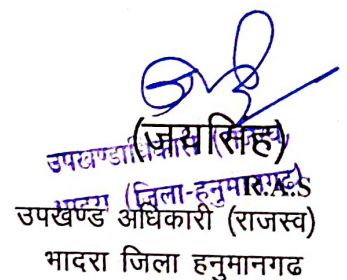 (जयसिंह)
उपखण्डाधिकारी (राजस्व)
R.A.S
भादरा (जिला-हनुमानगढ़)
उपखण्ड अधिकारी (राजस्व)
भादरा जिला हनुमानगढ